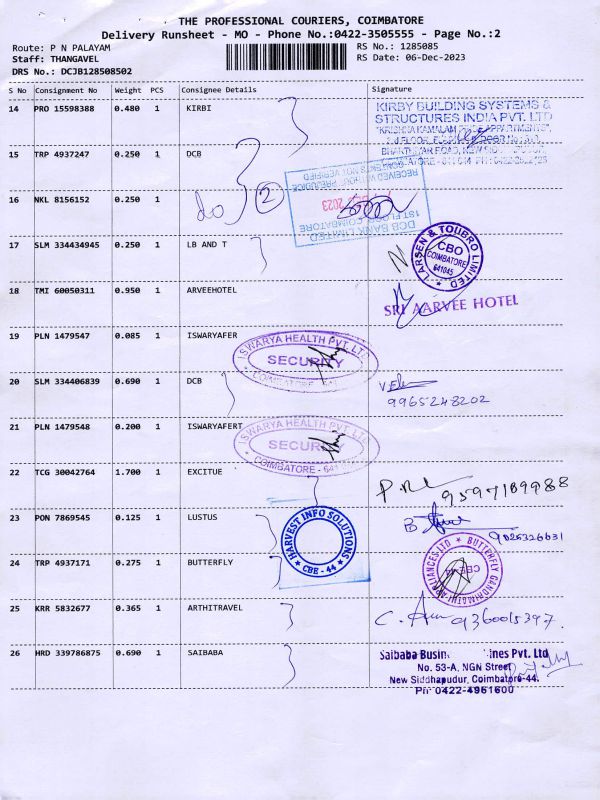 THE PROFESSIONAL COURIERS, COIMBATORE
Delivery Runsheet - MO - Phone No.:0422-3505555 - Page No.:2
Route: P N PALAYAM
RS No.: 1285085
Staff: THANGAVEL
RS Date: 06-Dec-2023
DRS No.: DCJB128508502
S No Consignment No Weight PCS Consignee Details Signature
14 PRO 15598388 0.480 1 KIRBI
KIRBY BUILDING SYSTEMS &
STRUCTURES INDIA PVT. LTD
15 TRP 4937247 0.250 1 DCB
16 NKL 8156152 0.250 1
do 2
DCB BANK LIMITED
1ST FLOOR, COIMBATORE
2023
RECEIVED WITHOUT PREJUDICE
CONTENTS NOT VERIFIED
17 SLM 334434945 0.250 1 LB AND T
LARSEN & TOUBRO LIMITED
CBO
COIMBATORE
641045
18 TMI 60050311 0.950 1 ARVEEHOTEL
SRI AARVEE HOTEL
19 PLN 1479547 0.085 1 ISWARYAFER
ISWARYA HEALTH PVT. LTD
SECURITY
COIMBATORE - 641
20 SLM 334406839 0.690 1 DCB
9965248202
21 PLN 1479548 0.200 1 ISWARYAFERT
ISWARYA HEALTH PVT. LTD
SECURITY
COIMBATORE - 641
22 TCG 30042764 1.700 1 EXCITUE
9597189988
23 PON 7869545 0.125 1 LUSTUS
HARVEST INFO SOLUTIONS
* CBE - 44 *
9025326631
24 TRP 4937171 0.275 1 BUTTERFLY
BUTTERFLY GANDHIMATHI APPLIANCES LTD
25 KRR 5832677 0.365 1 ARTHITRAVEL
9360015397.
26 HRD 339786875 0.690 1 SAIBABA
Saibaba Busin ines Pvt. Ltd
No. 53-A, NGN Street
New Siddhapudur, Coimbatore-44.
PH: 0422-4961600